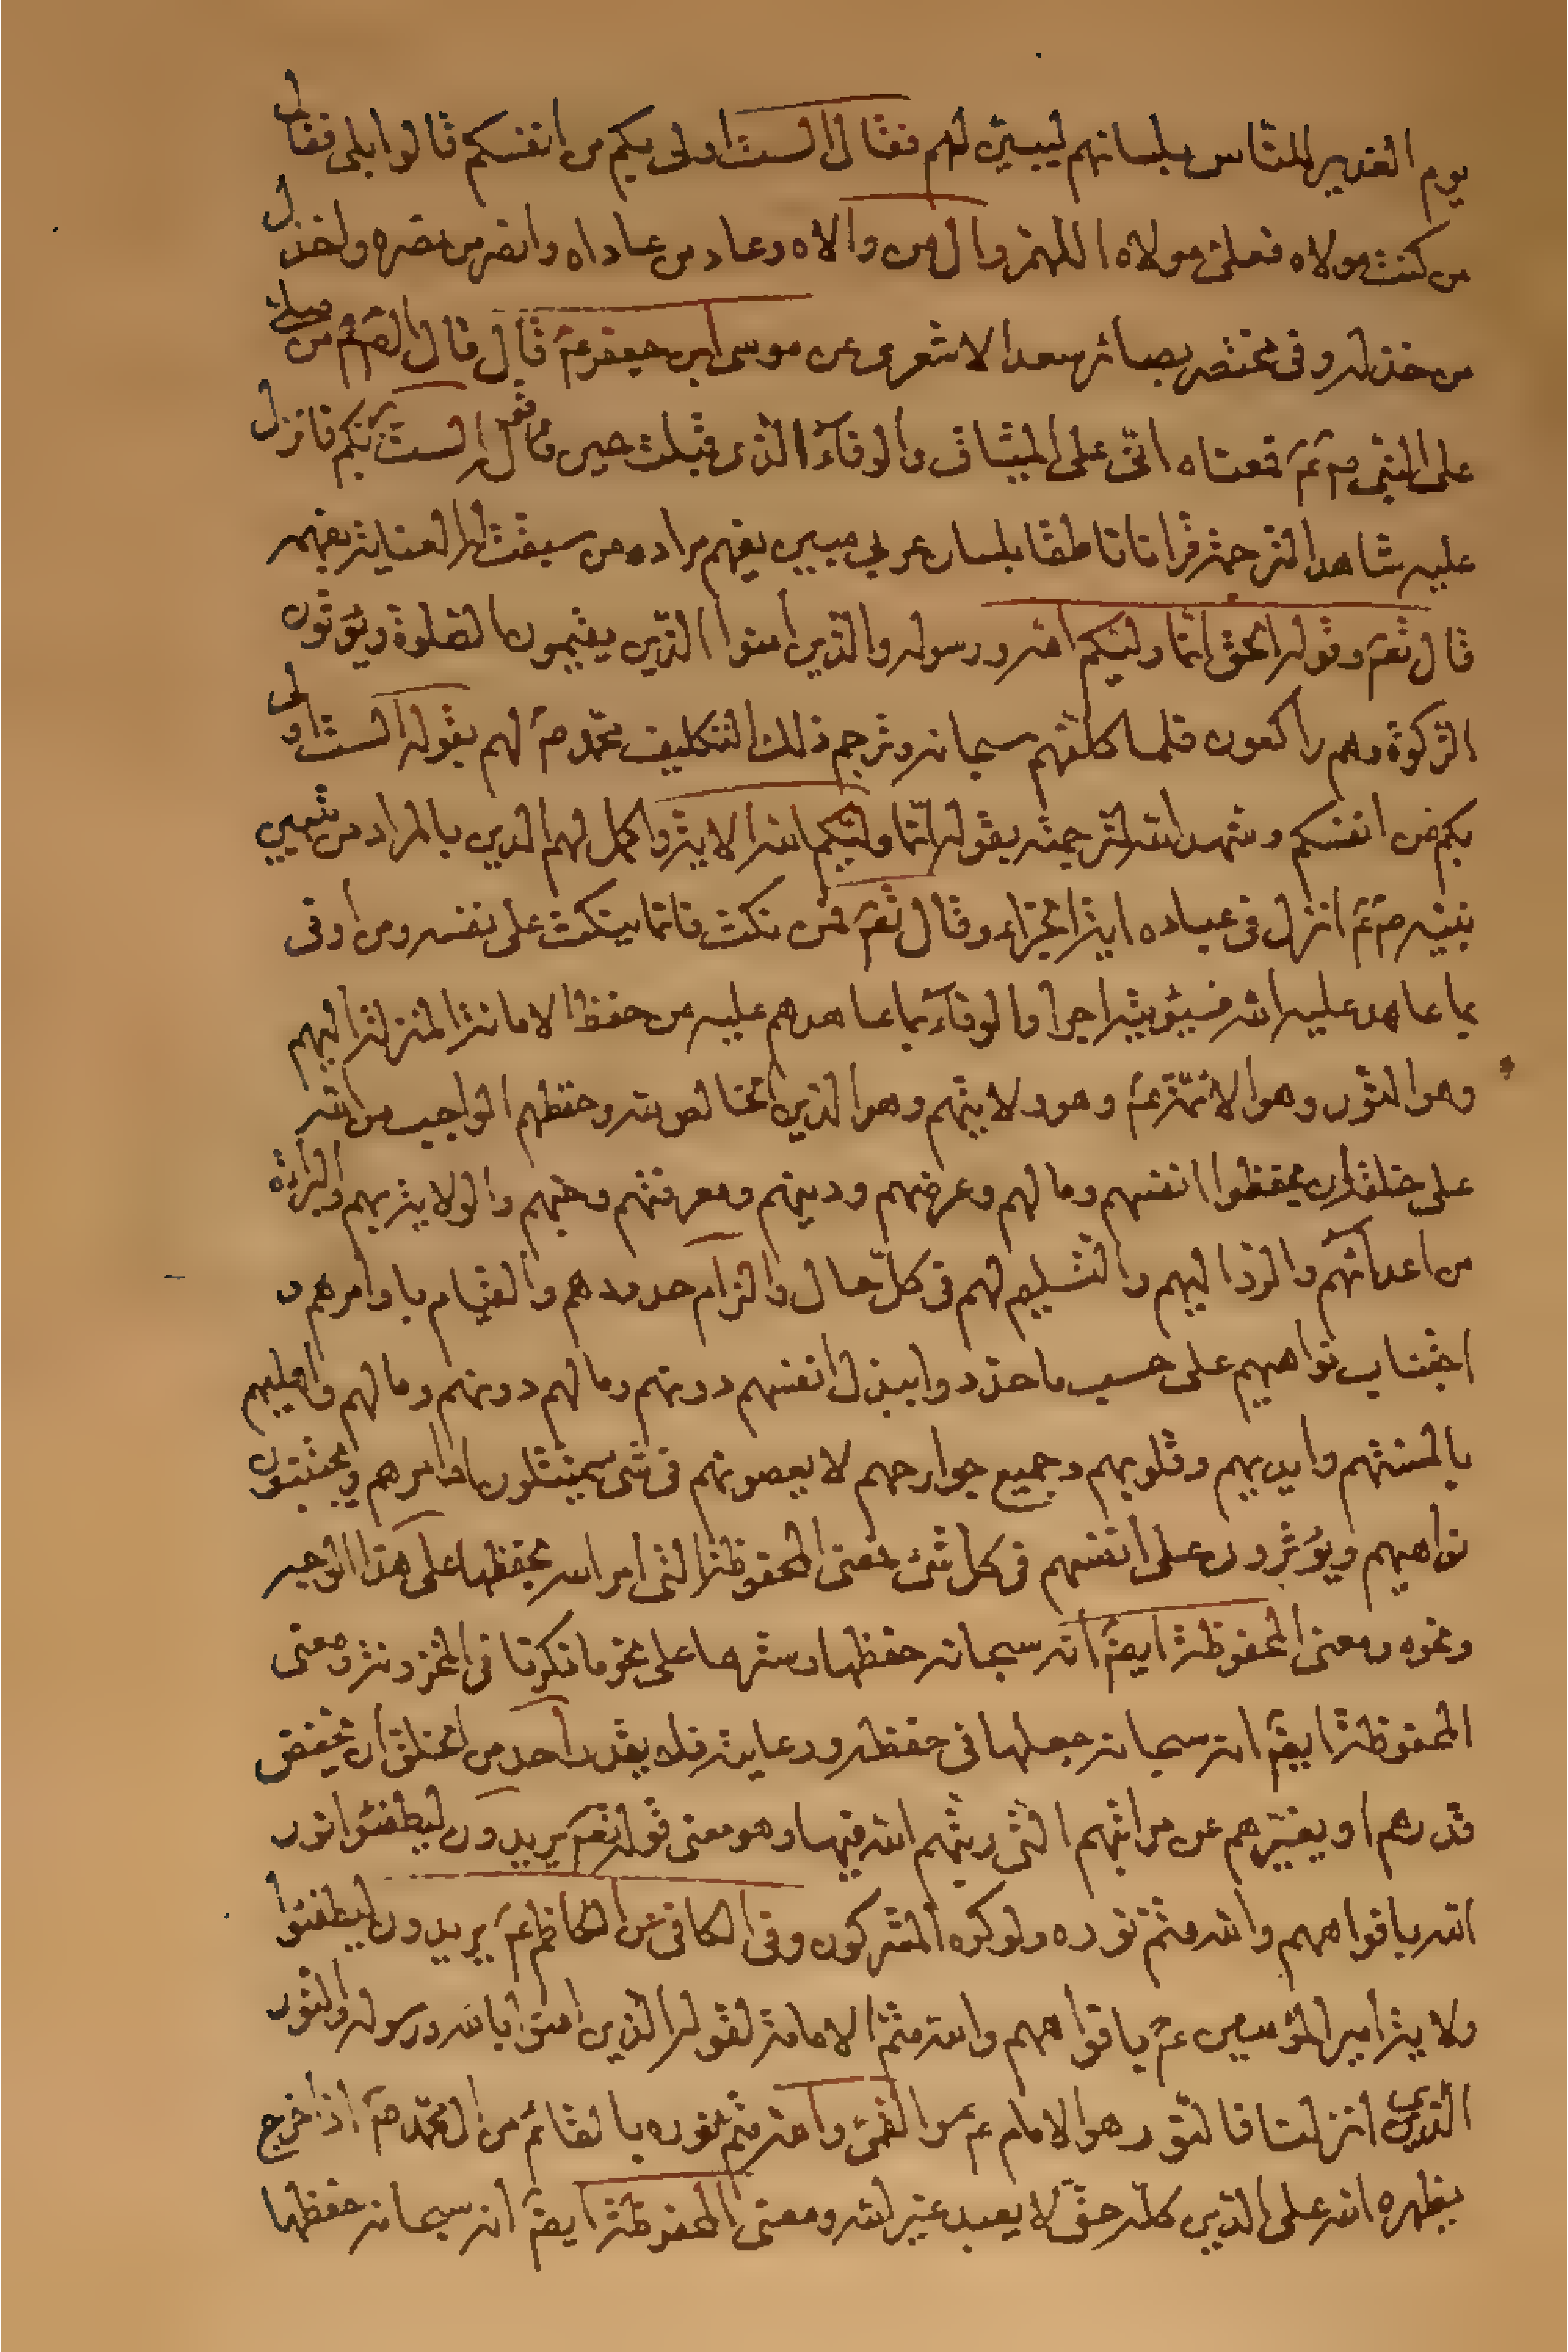 يوم الغدير للناس بلسانهم ليبين لهم فقال الست اولى بكم من انفسكم قالوا بلى فقال
من كنت مولاه فعلىّ مولاه اللهم وال من والاه وعاد من عاداه وانصر من نصره واخذل
من خذله وفى مختصر بصائر سعد الاشعرى عن موسى ابن جعفر عم قال قال الصم من صلى
على النبى ص عم فمعناه انّى على الميثاق والوفآء الذى قبلت حين قوله الست بربكم فانزل
عليه شاهد الترجمة قرانا ناطقا بلسان عربي مبين يفهم مراده من سبقت له العناية بفهمه
قال تعم وقوله الحق انّما وليّكم الله ورسوله والذين امنوا الذين يقيمون الصلوة ويؤتون
الزكوة وهم راكعون فلما كلفهم سبحانه وترجم ذلك التكليف محمد صم لهم بقوله الست اولى
بكم من انفسكم وشهد الله لترجمته بقوله انّما وليّكم الله الاية واكمل لهم الدين بالمراد من تعيين
نبيه ص عم انزل فى عباده اية الجزاء وقال تعم فمن نكث فانما ينكث على نفسه ومن اوفى
بما عاهد عليه الله فسيؤتيه اجرا والوفآء بما عاهدهم عليه من حفظ الامانة المنزلة اليهم
وهو النور وهو الائمّة عم وهو ولايتهم وهو الدين الخالص لله وحفظهم الواجب من الله
على خلقه ان يحفظوا انفسهم ومالهم وعرضهم ودينهم ومعرفتهم وحبهم والولاية بهم والبرائة
من اعدائهم والردّ اليهم والتسليم لهم فى كلّ حال والتزام حدودهم والقيام باوامرهم و
اجتناب نواهيهم على حسب ما حدّدوا ببذل انفسهم دونهم ومالهم دونهم ومالهم واهليهم
بالسنتهم وايديهم وقلوبهم وجميع جوارحهم لا يعصونهم فى شئ يمتثلون اوامرهم ويجتنبون
نواهيهم ويؤثرون على انفسهم فى كل شئ فمعنى المحفوظة التى امر الله بحفظها على هذا الوجه
ونحوه ومعنى المحفوظة ايضا انه سبحانه حفظها وسترها على نحو ما ذكرنا فى المخزونة ومعنى
المحفوظة ايضا انه سبحانه جعلها فى حفظه ورعايته فلا يقدر احد من الخلق ان يخفض
قدرهم او يغيّرهم عن مراتبهم التى رتبهم الله فيها وهو معنى قوله تعم يريدون ليطفئوا نور
الله بافواههم والله متم نوره ولو كره المشركون وفى الكافى عن الكاظم عم يريدون ليطفئوا
ولاية امير المؤمنين عم بافواههم والله متم الامامة لقوله الذين امنوا بالله ورسوله والنور
الذى انزلنا فالنور هو الامام عم القمى والله متم نوره بالقائم من ال محمد صم اذا خرج
يظهره الله على الدين كله حتى لا يعبد غير الله ومعنى المحفوظة ايضا انه سبحانه حفظها